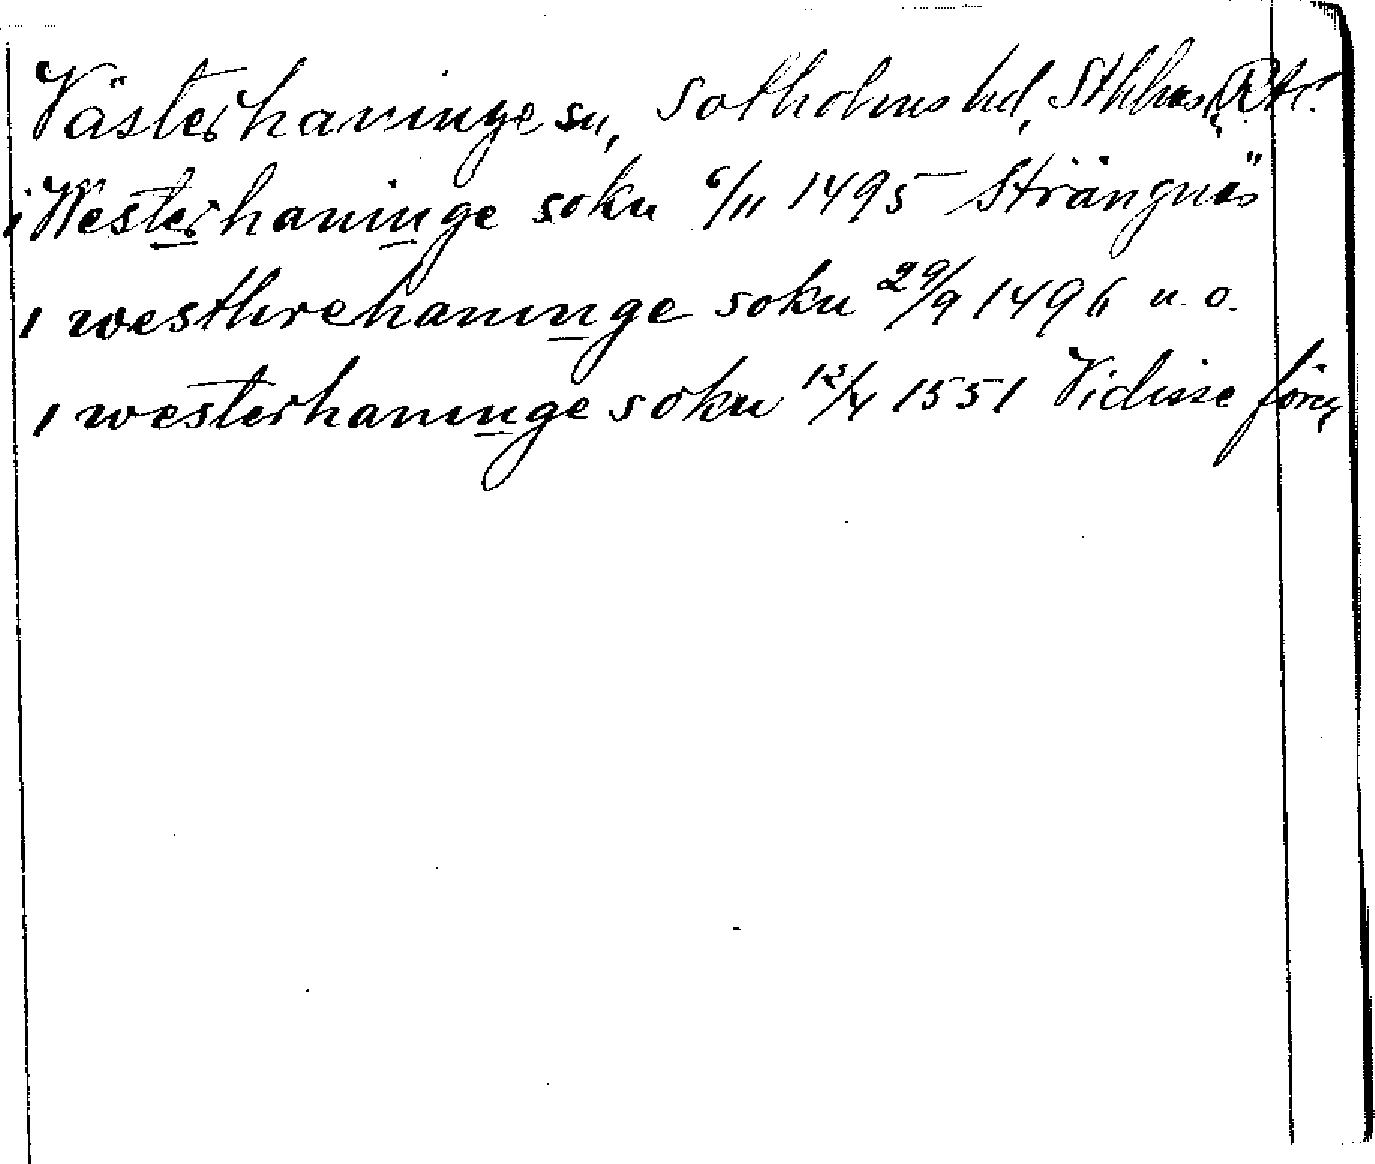 Västerhaninge sn, Sotholms hd, Sthlms l. RAP.
i Westerhaninge sokn 6/11 1495 Strängnäs
i westhrehaninge sokn 29/9 1496 u. o.
i westerhaninge sokn 12/4 1551 Vidisse